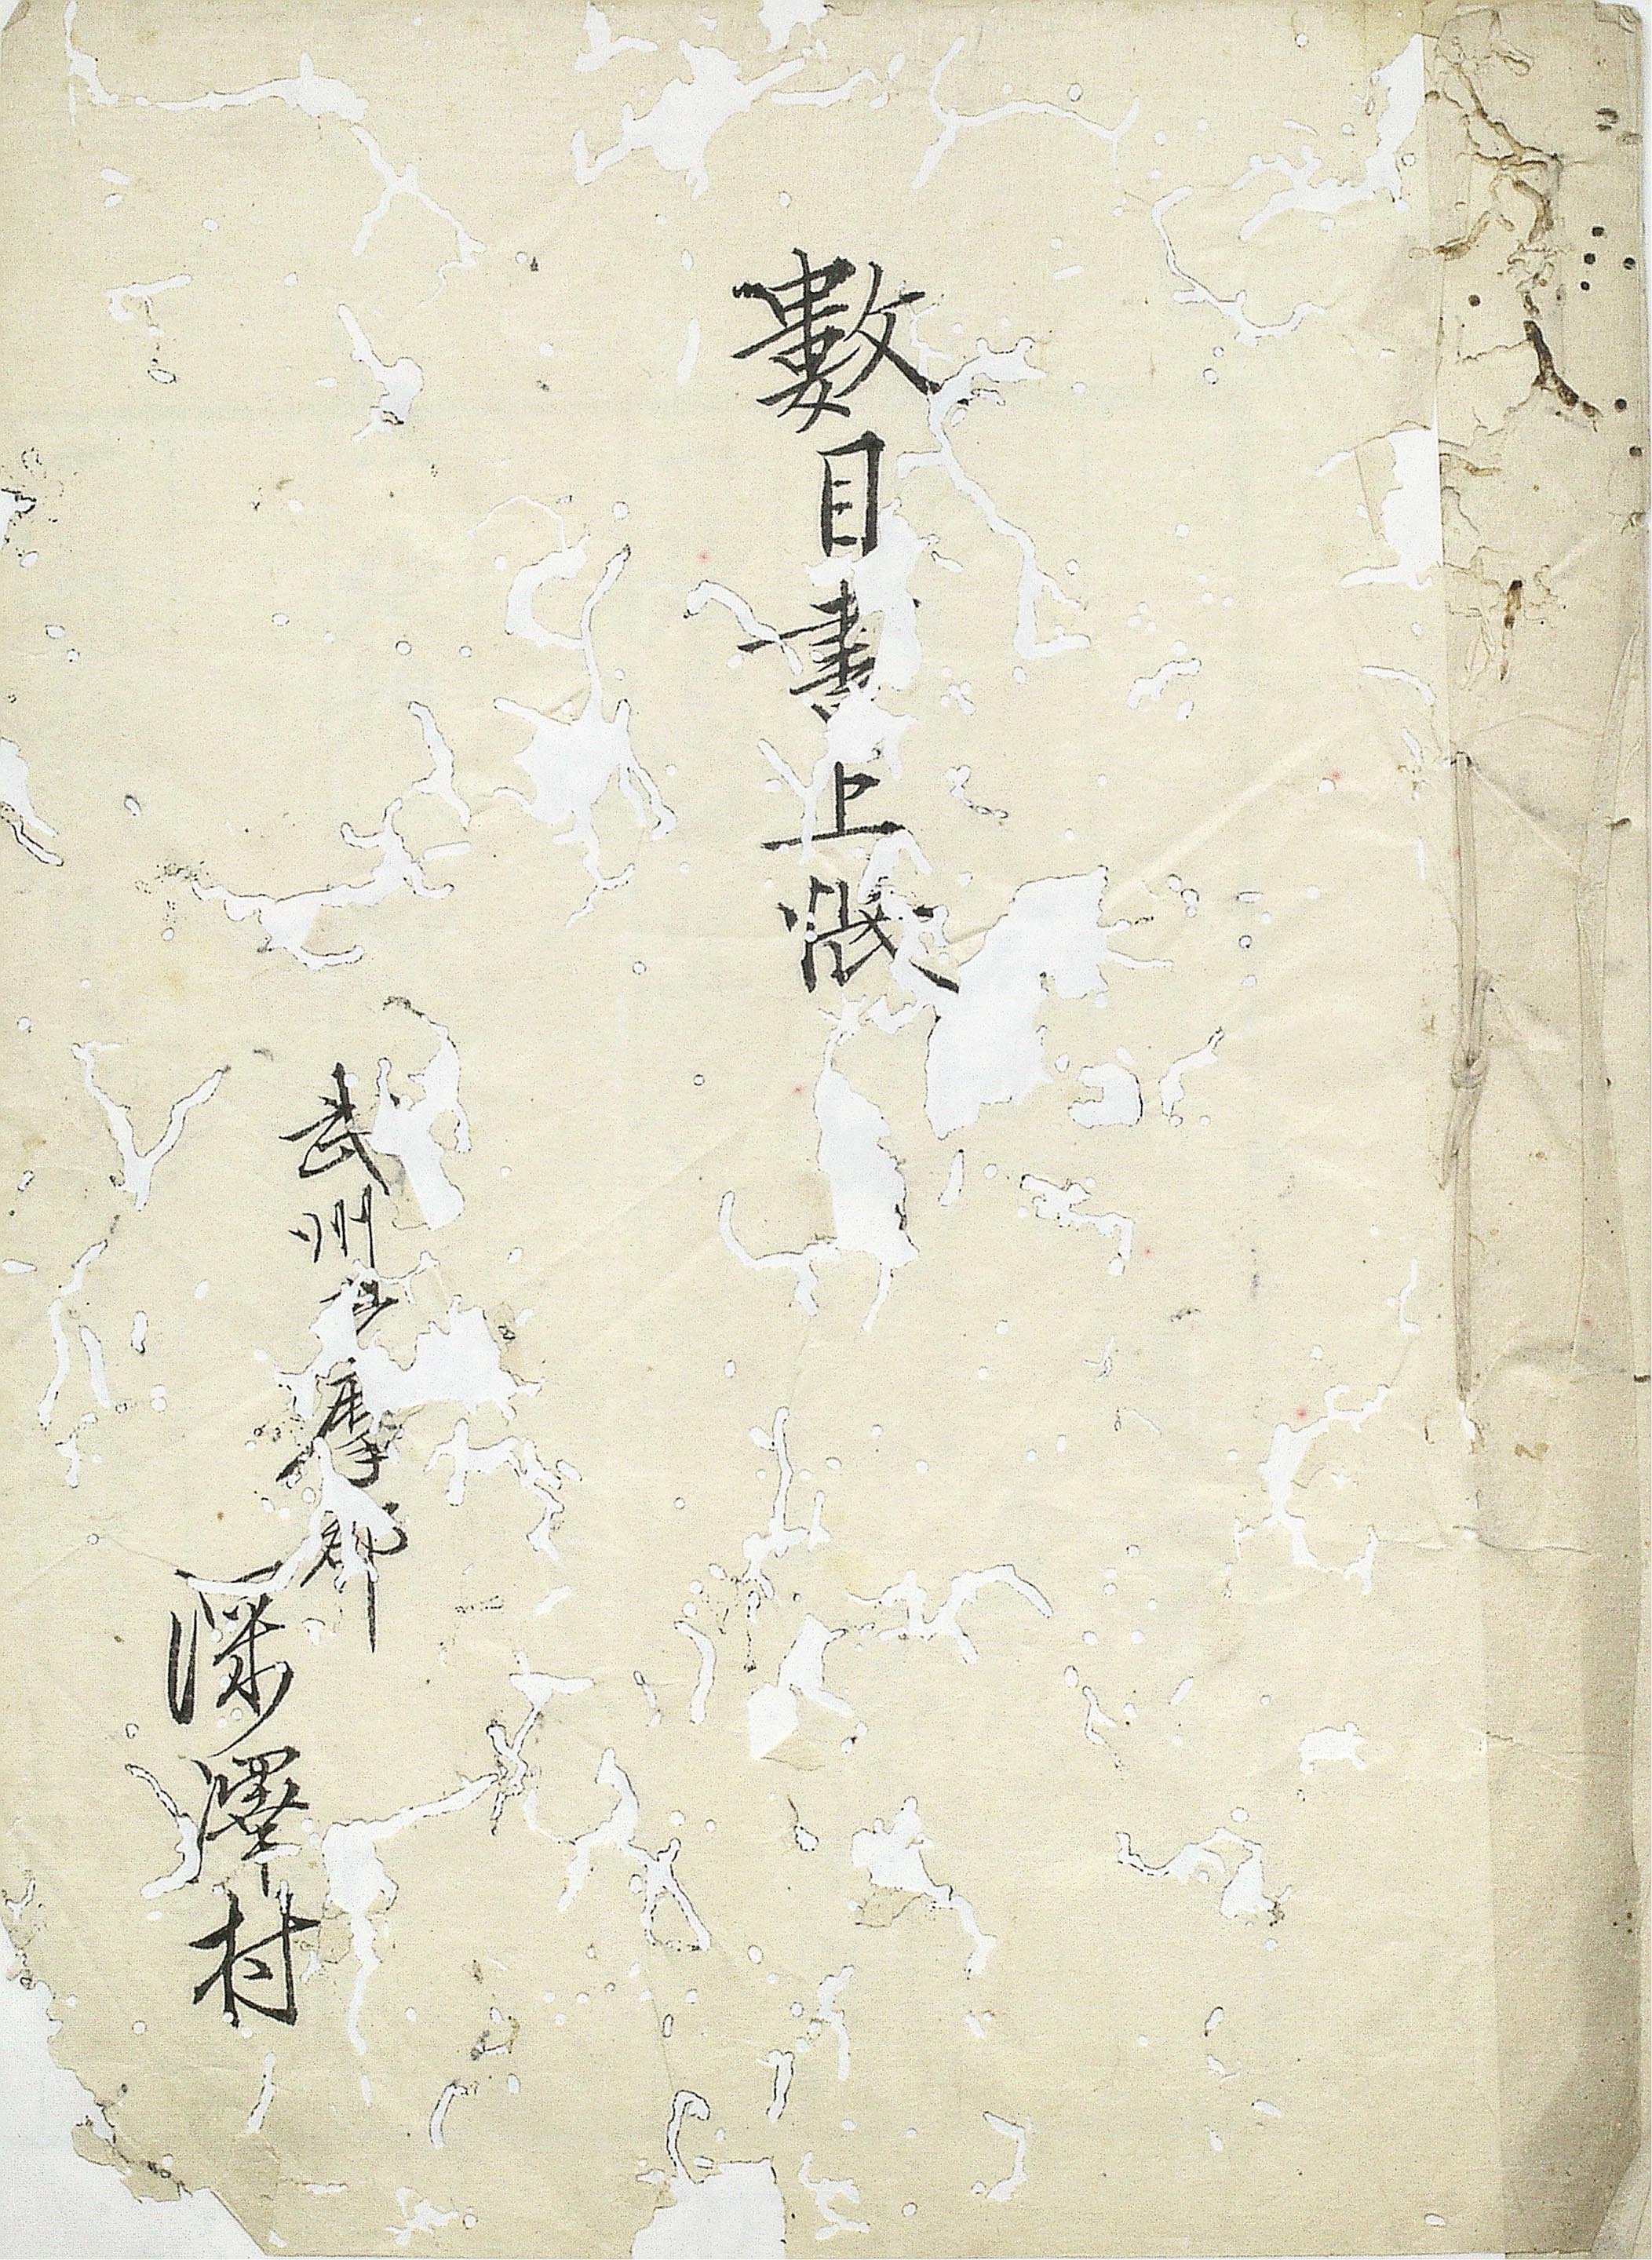 數目書上帳
武州多摩郡
深澤村